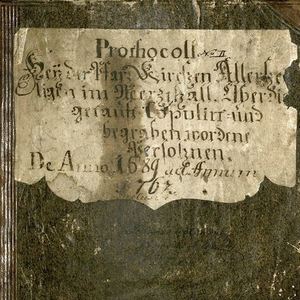 Prothocoll No II
Bey der Pfarr Kirchen Allerhei
ligen im Merzthall. Über die
getauft Copulirt und
begraben wordene
Persohnen.
De Anno 1689 ad Annum
1762